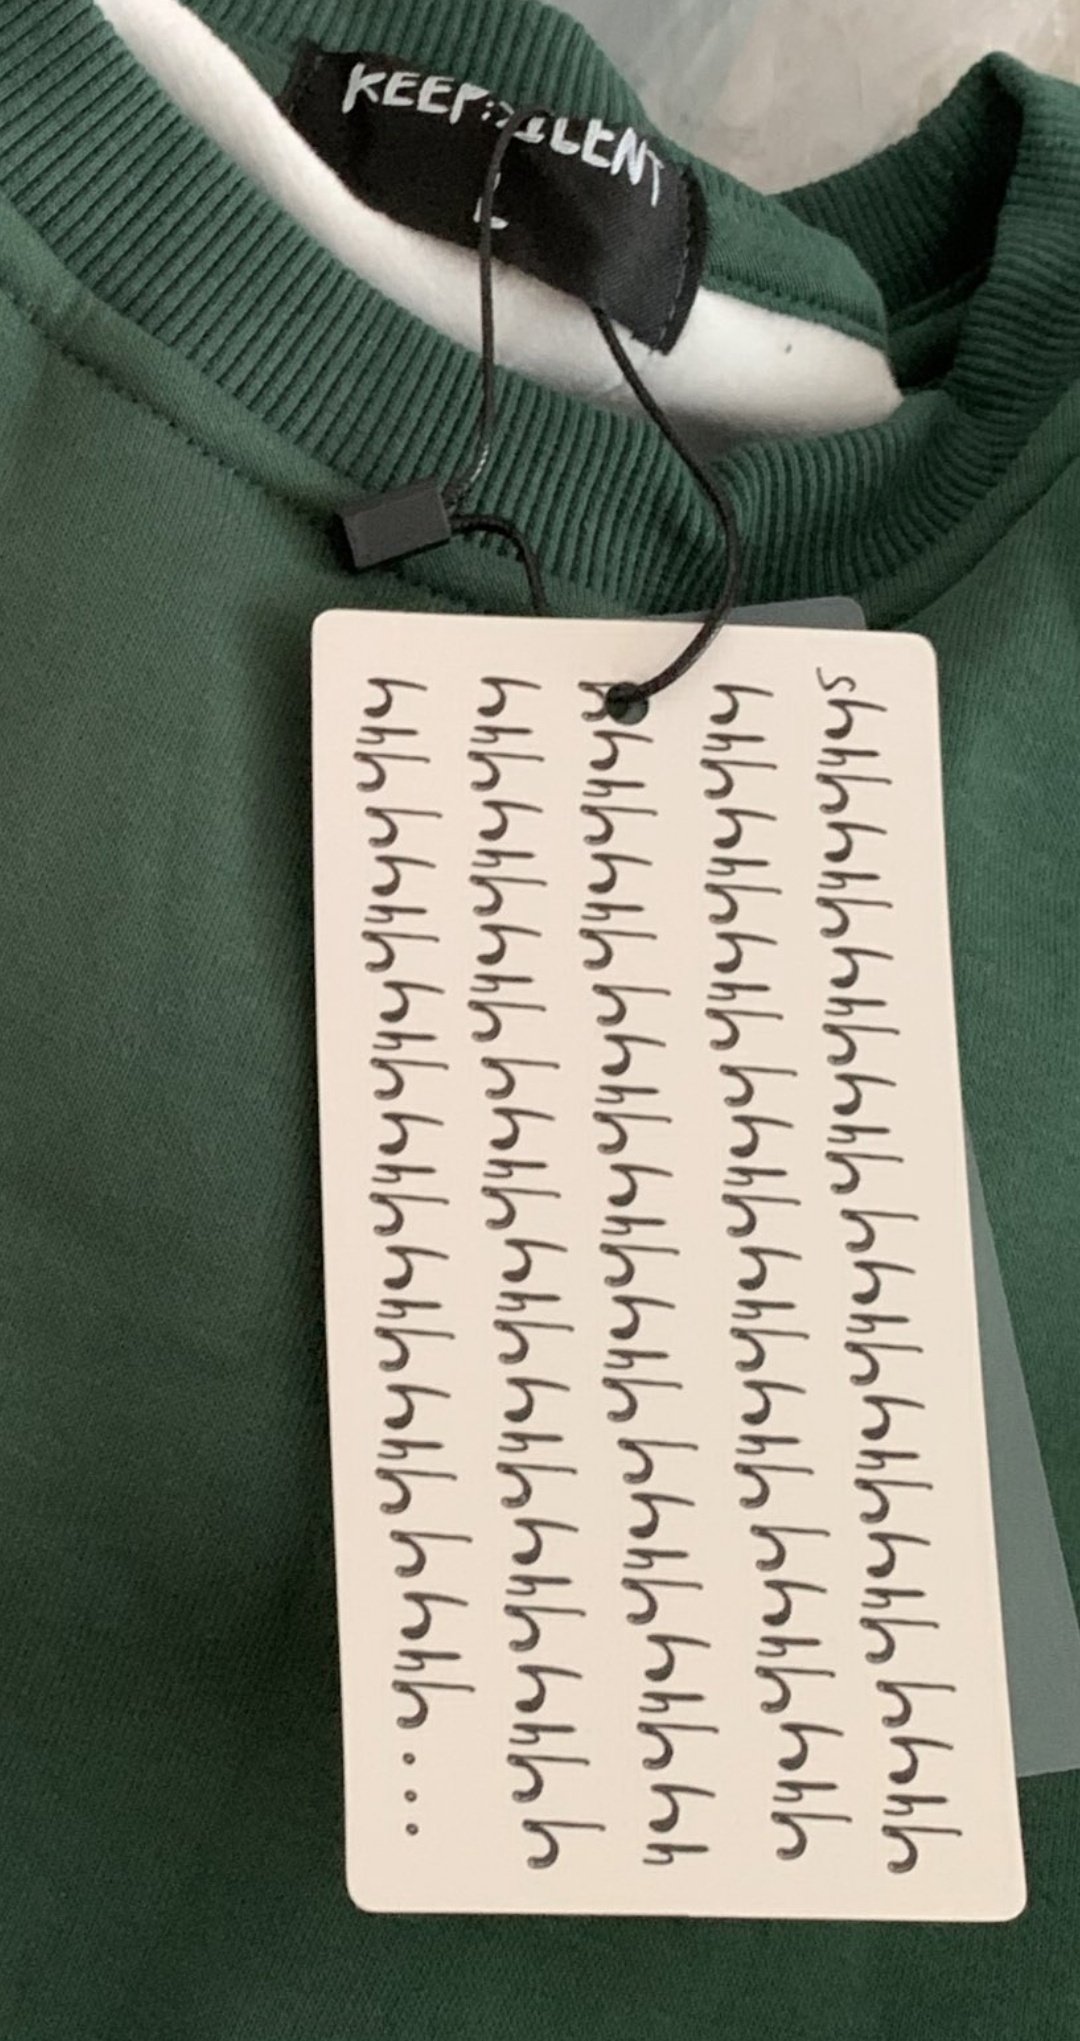 KEEP:SILENT
L
shhhhhhhhhhhhhhhhhhhhhhhhhh
hhhhhhhhhhhhhhhhhhhhhhhhhh
hhhhhhhhhhhhhhhhhhhhhhhhhh
hhhhhhhhhhhhhhhhhhhhhhhhhh
hhhhhhhhhhhhhhhhhhhhhhh...